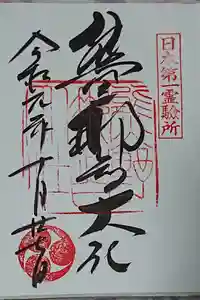 日本第一霊験所
熊野大社
令和元年十月廿七日